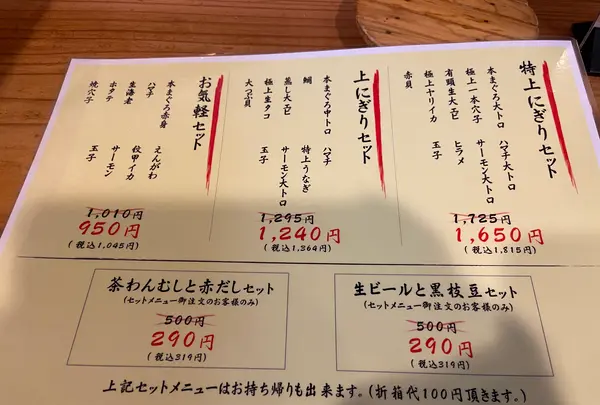 特上にぎりセット
本まぐろ大トロ
ハマチ大トロ
極上一本穴子
サーモン大トロ
有頭生大エビ
ヒラメ
極上ヤリイカ
玉子
赤貝
1,725円
1,650円
(税込1,815円)
上にぎりセット
本まぐろ中トロ
ハマチ
鯛
特上うなぎ
蒸し大エビ
サーモン大トロ
極上生タコ
玉子
大つぶ貝
1,295円
1,240円
(税込1,364円)
お気軽セット
本まぐろ赤身
えんがわ
ハマチ
紋甲イカ
生海老
サーモン
ホタテ
玉子
焼穴子
1,010円
950円
(税込1,045円)
茶わんむしと赤だしセット
(セットメニュー御注文のお客様のみ)
500円
290円
(税込319円)
生ビールと黒枝豆セット
(セットメニュー御注文のお客様のみ)
500円
290円
(税込319円)
上記セットメニューはお持ち帰りも出来ます。(折箱代100円頂きます。)